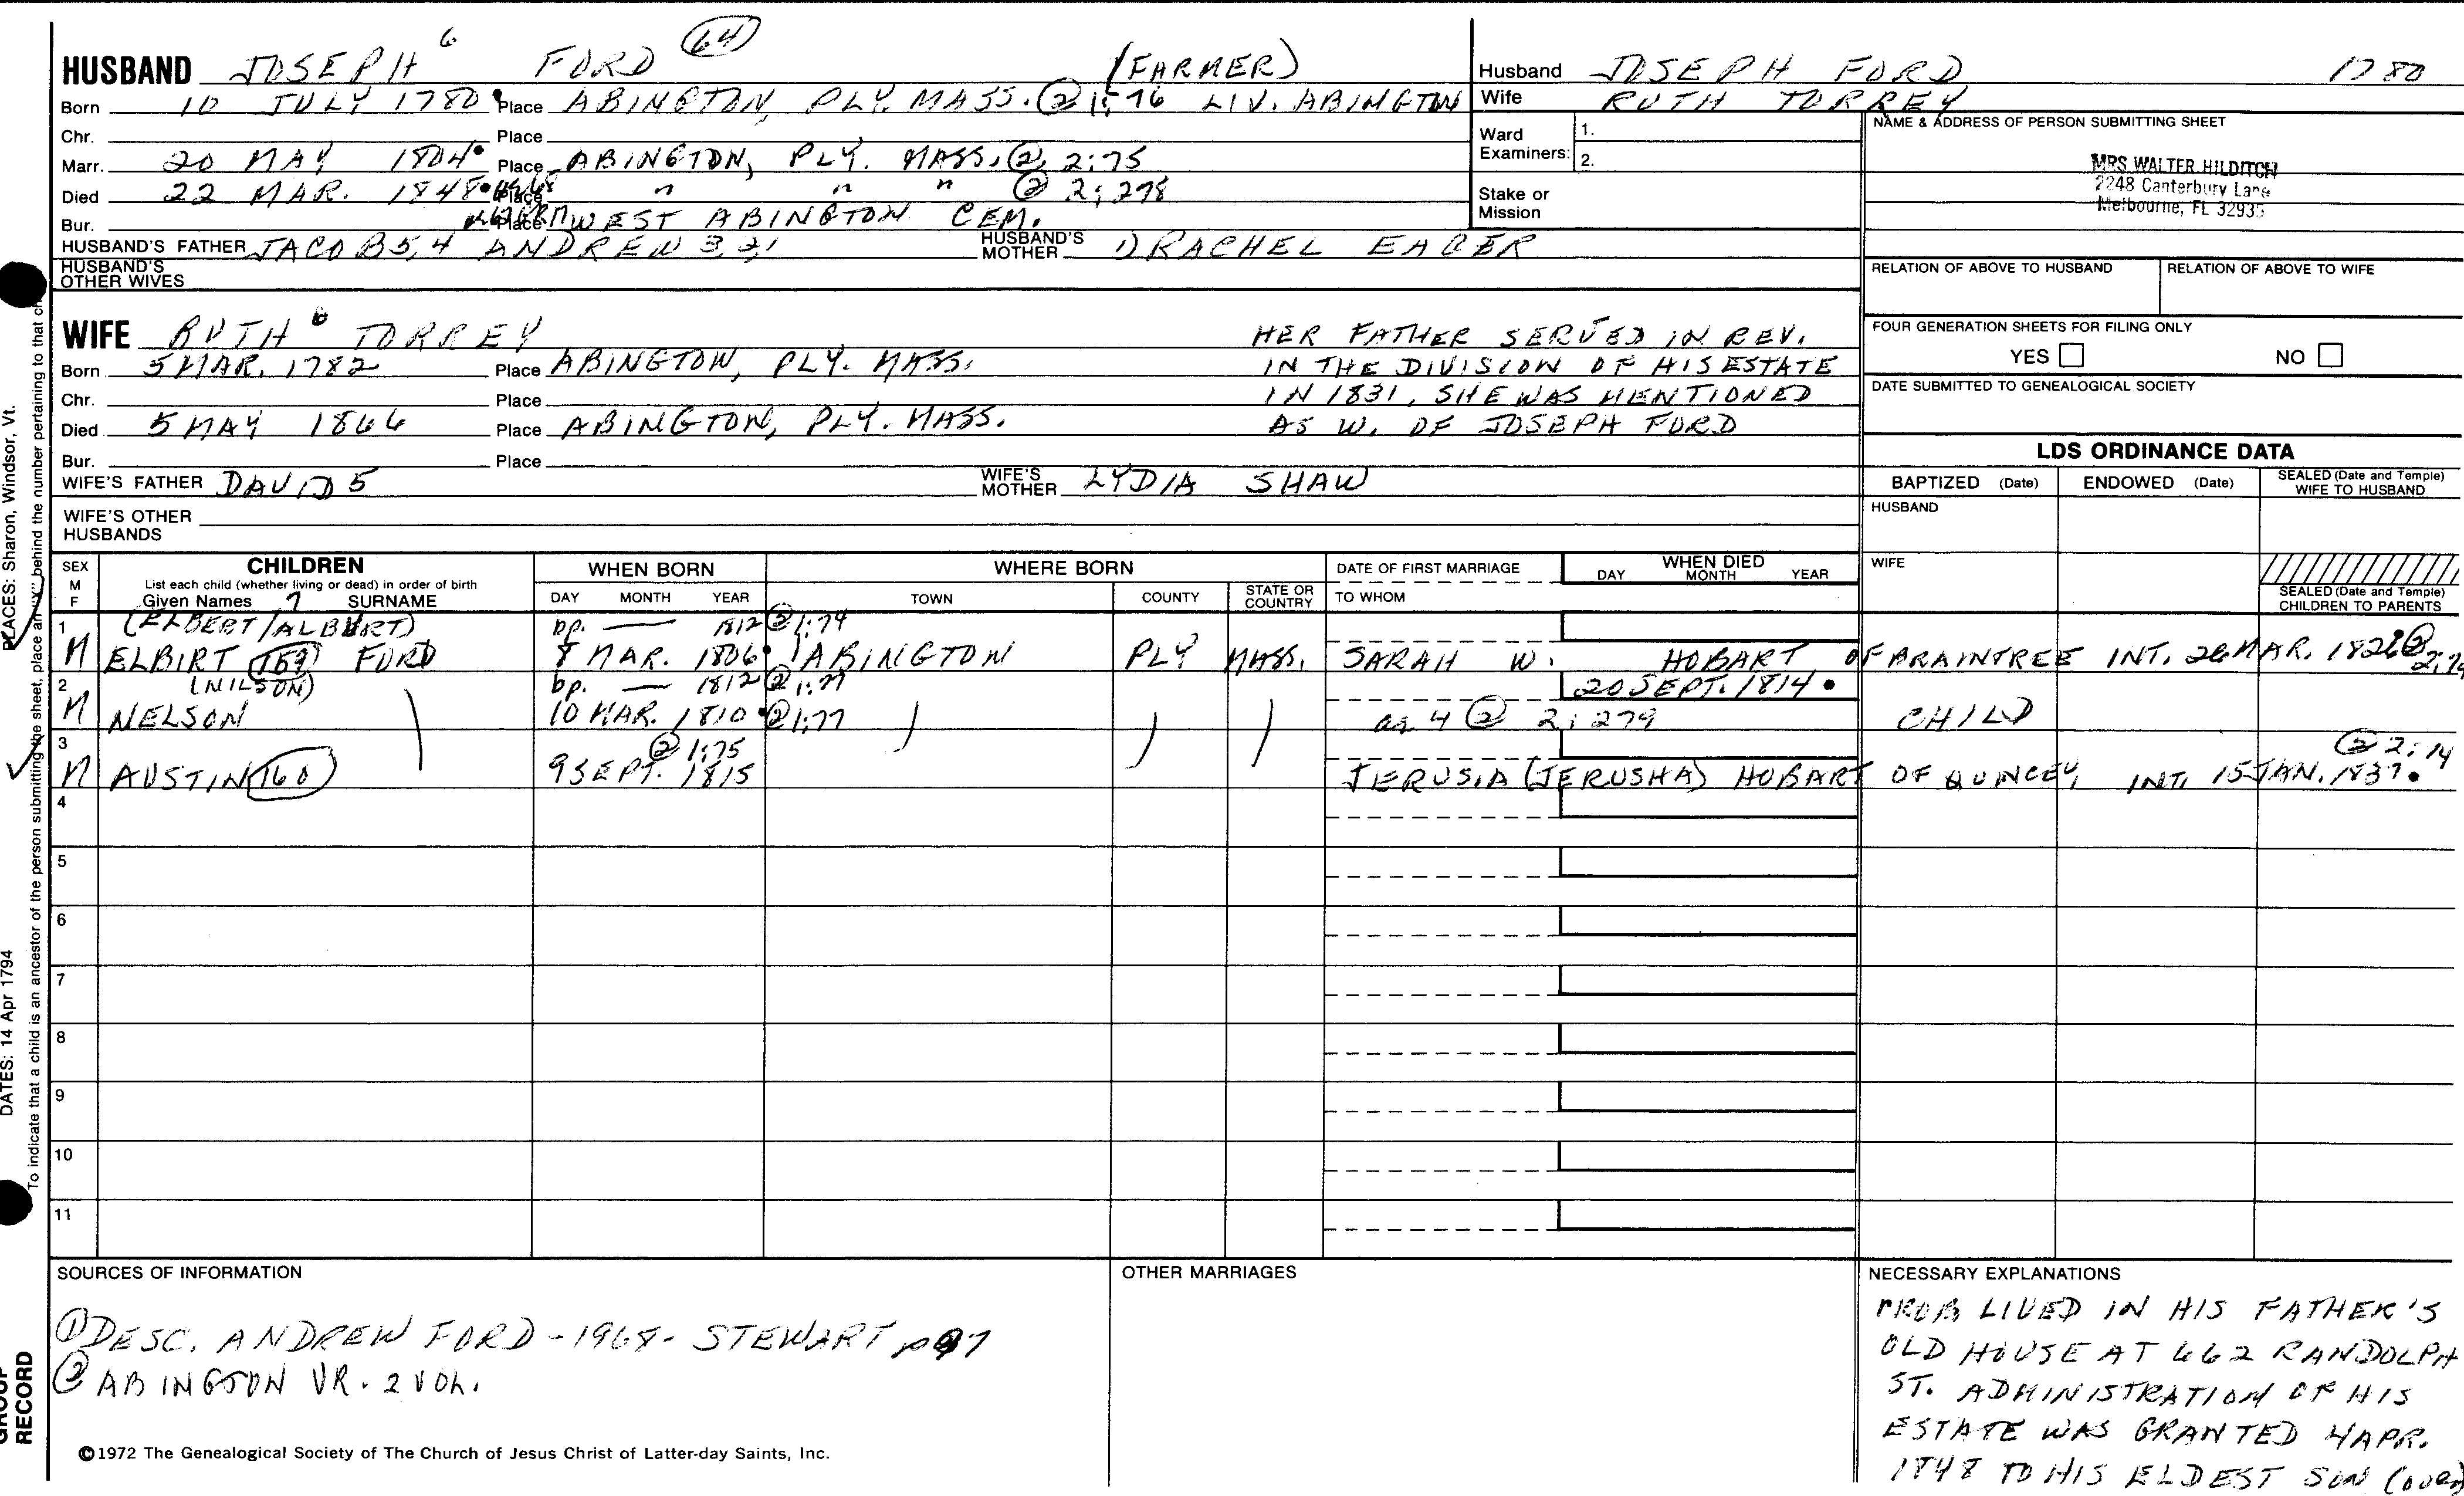 HUSBAND JOSEPH 6 FORD (64) (FARMER)
Born 10 JULY 1780 Place ABINGTON, PLY. MASS. ② 1:76 LIV. ABINGTON
Chr. Place
Marr. 20 MAY 1804 Place ABINGTON, PLY. MASS. ② 2:75
Died 22 MAR. 1848 Place " " " ② 2:278
Bur. Place WEST ABINGTON CEM.
HUSBAND'S FATHER JACOB 5, 4 ANDREW 3 2 1 HUSBAND'S MOTHER 1) RACHEL EAGER
HUSBAND'S OTHER WIVES
Husband JOSEPH FORD 1780
Wife RUTH TORREY
Ward Examiners: 1.
2.
Stake or Mission
NAME & ADDRESS OF PERSON SUBMITTING SHEET
MRS WALTER HILDITCH
2248 Canterbury Lane
Melbourne, FL 32935
RELATION OF ABOVE TO HUSBAND RELATION OF ABOVE TO WIFE
FOUR GENERATION SHEETS FOR FILING ONLY
YES NO
DATE SUBMITTED TO GENEALOGICAL SOCIETY
WIFE RUTH 6 TORREY HER FATHER SERVED IN REV.
Born 5 MAR. 1782 Place ABINGTON, PLY. MASS. IN THE DIVISION OF HIS ESTATE
Chr. Place IN 1831, SHE WAS MENTIONED
Died 5 MAY 1866 Place ABINGTON, PLY. MASS. AS W. OF JOSEPH FORD
Bur. Place
WIFE'S FATHER DAVID 5 WIFE'S MOTHER LYDIA SHAW
WIFE'S OTHER HUSBANDS
LDS ORDINANCE DATA
BAPTIZED (Date) ENDOWED (Date) SEALED (Date and Temple) WIFE TO HUSBAND
HUSBAND
WIFE
SEALED (Date and Temple) CHILDREN TO PARENTS
SEX M F CHILDREN WHEN BORN WHERE BORN DATE OF FIRST MARRIAGE WHEN DIED
List each child (whether living or dead) in order of birth
Given Names 7 SURNAME DAY MONTH YEAR TOWN COUNTY STATE OR COUNTRY TO WHOM DAY MONTH YEAR
1 (ELBERT/ALBURT) bp. — 1812 ② 1:74
M ELBIRT (159) FORD 8 MAR. 1806 ABINGTON PLY MASS. SARAH W. HOBART OF BRAINTREE INT. 26 MAR. 1828 ②
2 (NILSON) bp. — 1812 ② 1:77 20 SEPT. 1814
M NELSON 10 MAR. 1810 ② 1:77 as 4 ② 2:279 CHILD
3 ② 1:75 ② 2:74
M AUSTIN (160) 9 SEPT. 1815 JERUSIA (JERUSHA) HOBART OF QUINCEY, INT. 15 JAN. 1837
4
5
6
7
8
9
10
11
SOURCES OF INFORMATION
① DESC. ANDREW FORD - 1968 - STEWART p 97
② ABINGTON VR. 2 VOL.
OTHER MARRIAGES
NECESSARY EXPLANATIONS
PROB LIVED IN HIS FATHER'S
OLD HOUSE AT 662 RANDOLPH
ST. ADMINISTRATION OF HIS
ESTATE WAS GRANTED 4 APR.
1848 TO HIS ELDEST SON (over)
©1972 The Genealogical Society of The Church of Jesus Christ of Latter-day Saints, Inc.
PLACES: Sharon, Windsor, Vt.
DATES: 14 Apr 1794
GROUP RECORD
To indicate that a child is an ancestor of the person submitting the sheet, place an "X" behind the number pertaining to that